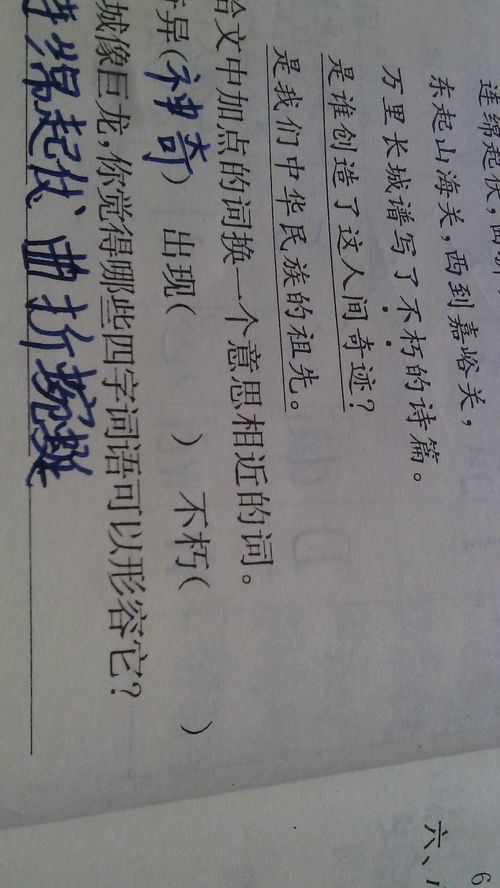 连绵起伏,
东起山海关,西到嘉峪关,
万里长城谱写了不朽的诗篇。
是谁创造了这人间奇迹?
是我们中华民族的祖先。
给文中加点的词换一个意思相近的词。
异(神奇) 出现( ) 不朽( )
城像巨龙,你觉得哪些四字词语可以形容它?
绵起伏 曲折
六、
6